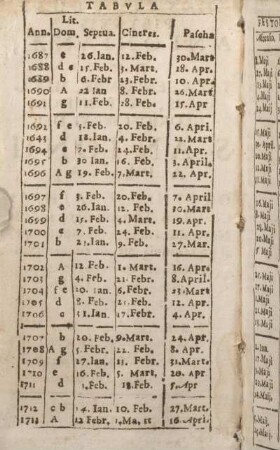 TABVLA
Lit.
Ann. Dom. Septua. Cineres. Pascha
1687 e 26.Ian. 12.Feb. 30.Mart
1688 d c 15.Feb. 3.Mart. 18.Apr.
1689 b 6.Febr 23.Febr. 10.Apr.
1690 A 22 Ian 8.Febr. 26.Mart
1691 g 11.Feb. 28.Feb. 15.Apr
1692 f e 3.Feb. 20.Feb. 6.Apri.
1693 d 18.Ian. 4.Febr. 22.Mart
1694 c 7.Feb. 24.Feb. 11.Apr.
1695 b 30 Ian. 16.Feb. 3.April.
1696 A g 19.Feb. 7.Mart. 22.Apr.
1697 f 3.Feb. 20.Feb. 7.April
1698 e 26.Ian. 12.Feb. 30.Mart
1699 d 15.Feb. 4.Mart. 19.Apr.
1700 c 7.Feb. 24.Feb. 11.Apr.
1701 b 23.Ian. 9.Feb. 27.Mar.
1702 A 12.Feb. 1.Mart. 16.Apr.
1703 g 4.Feb. 21.Febr. 8.April.
1704 f e 20.Ian. 6.Febr. 23.Mart
1705 d 8.Febr. 25.Feb. 12.Apr.
1706 c 31.Ian. 17.Feb. 4.Apr.
1707 b 20.Feb. 9.Mart. 24.Apr.
1708 A g 5.Febr. 22.Feb. 8.Apr.
1709 f 27.Ian. 13.Febr. 31.Mart
1710 e 16.Feb. 5.Mart. 20.Apr.
1711 d 1.Feb. 18.Feb. 5.Apr
1712 c b 24.Ian. 10.Feb. 27.Mart.
1713 A 12 Febr. 1.Ma. 16.April.